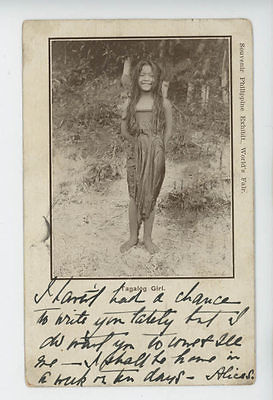 Souvenir Philippine Exhibit, World's Fair.
Tagalog Girl.
I havn't had a chance
to write you lately but I
do want you to come & see
me — I shall be home in
a week or ten days — Alice.